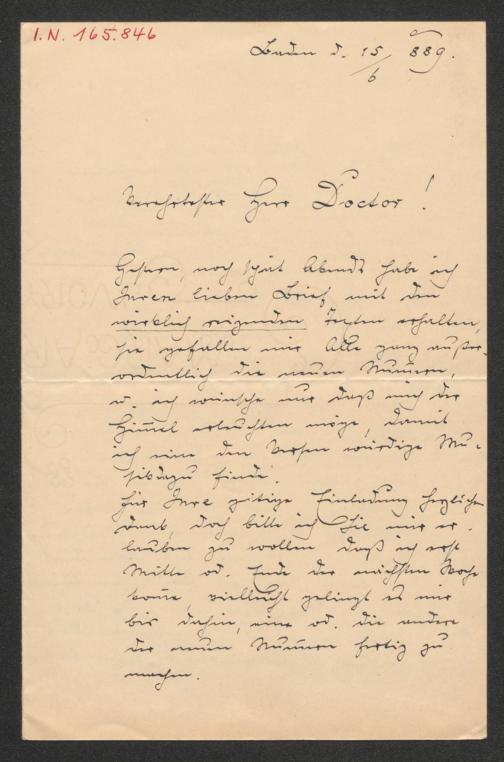 I.N. 165.846
Baden d. 15/6 889.
Verehrtester Herr Doctor!
Gestern, noch spät Abends habe ich
Ihren lieben Brief, mit den
wirklich reizenden Texten erhalten,
sie gefallen mir Alle ganz außer-
ordentlich die neuen Numern,
u. ich wünsche nur daß mich der
Himel erleuchten möge, damit
ich eine den Versen würdige Mu-
sik dazu finde.
Für Ihre gütige Einladung herzlichen
Dank, doch bitte ich Sie mir er-
lauben zu wollen daß ich erst
Mitte od. Ende der nächsten Woche
kome vielleicht gelingt es mir
bis dahin, eine od. die andere
der neuen Numern fertig zu
machen.